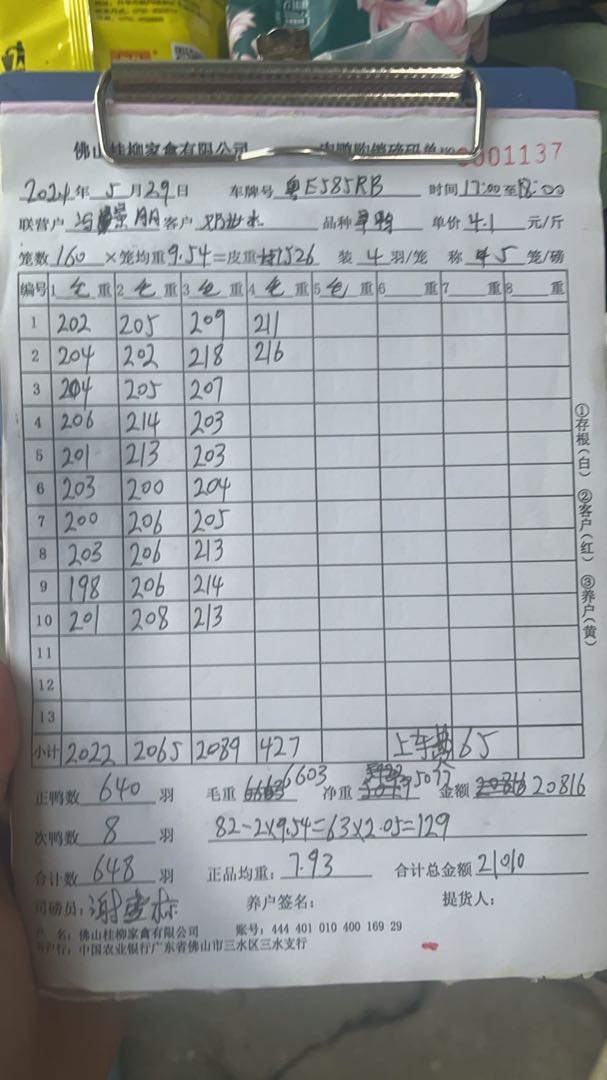 佛山桂柳家禽有限公司 肉鸭购销磅码单 №0001137
2024年 5月29日 车牌号 粤E585RB 时间17:00至18:00
联营户 景朋 客户 品种 单价 4.1 元/斤
笼数 160 ×笼均重9.54=皮重1526 装 4 羽/笼 称 5 笼/磅
编号 1 毛 重 2 毛 重 3 毛 重 4 毛 重 5 毛 重 6 重 7 重 8 重
1 202 205 209 211
2 204 202 218 216
3 204 205 207
4 206 214 203
5 201 213 203
6 203 200 204
7 200 206 205
8 203 206 213
9 198 206 214
10 201 208 213
11
12
13
小计 2022 2065 2089 427 上车费65
正鸭数 640 羽 毛重 6603 净重 5077 金额 20816
次鸭数 8 羽 82-2×9.54=63×2.05=129
合计数 648 羽 正品均重: 7.93 合计总金额 21010
司磅员: 谢 养户签名: 提货人:
户 名: 佛山桂柳家禽有限公司 账号: 444 401 010 400 169 29
开户行: 中国农业银行广东省佛山市三水区三水支行
①存根(白) ②客户(红) ③养户(黄)